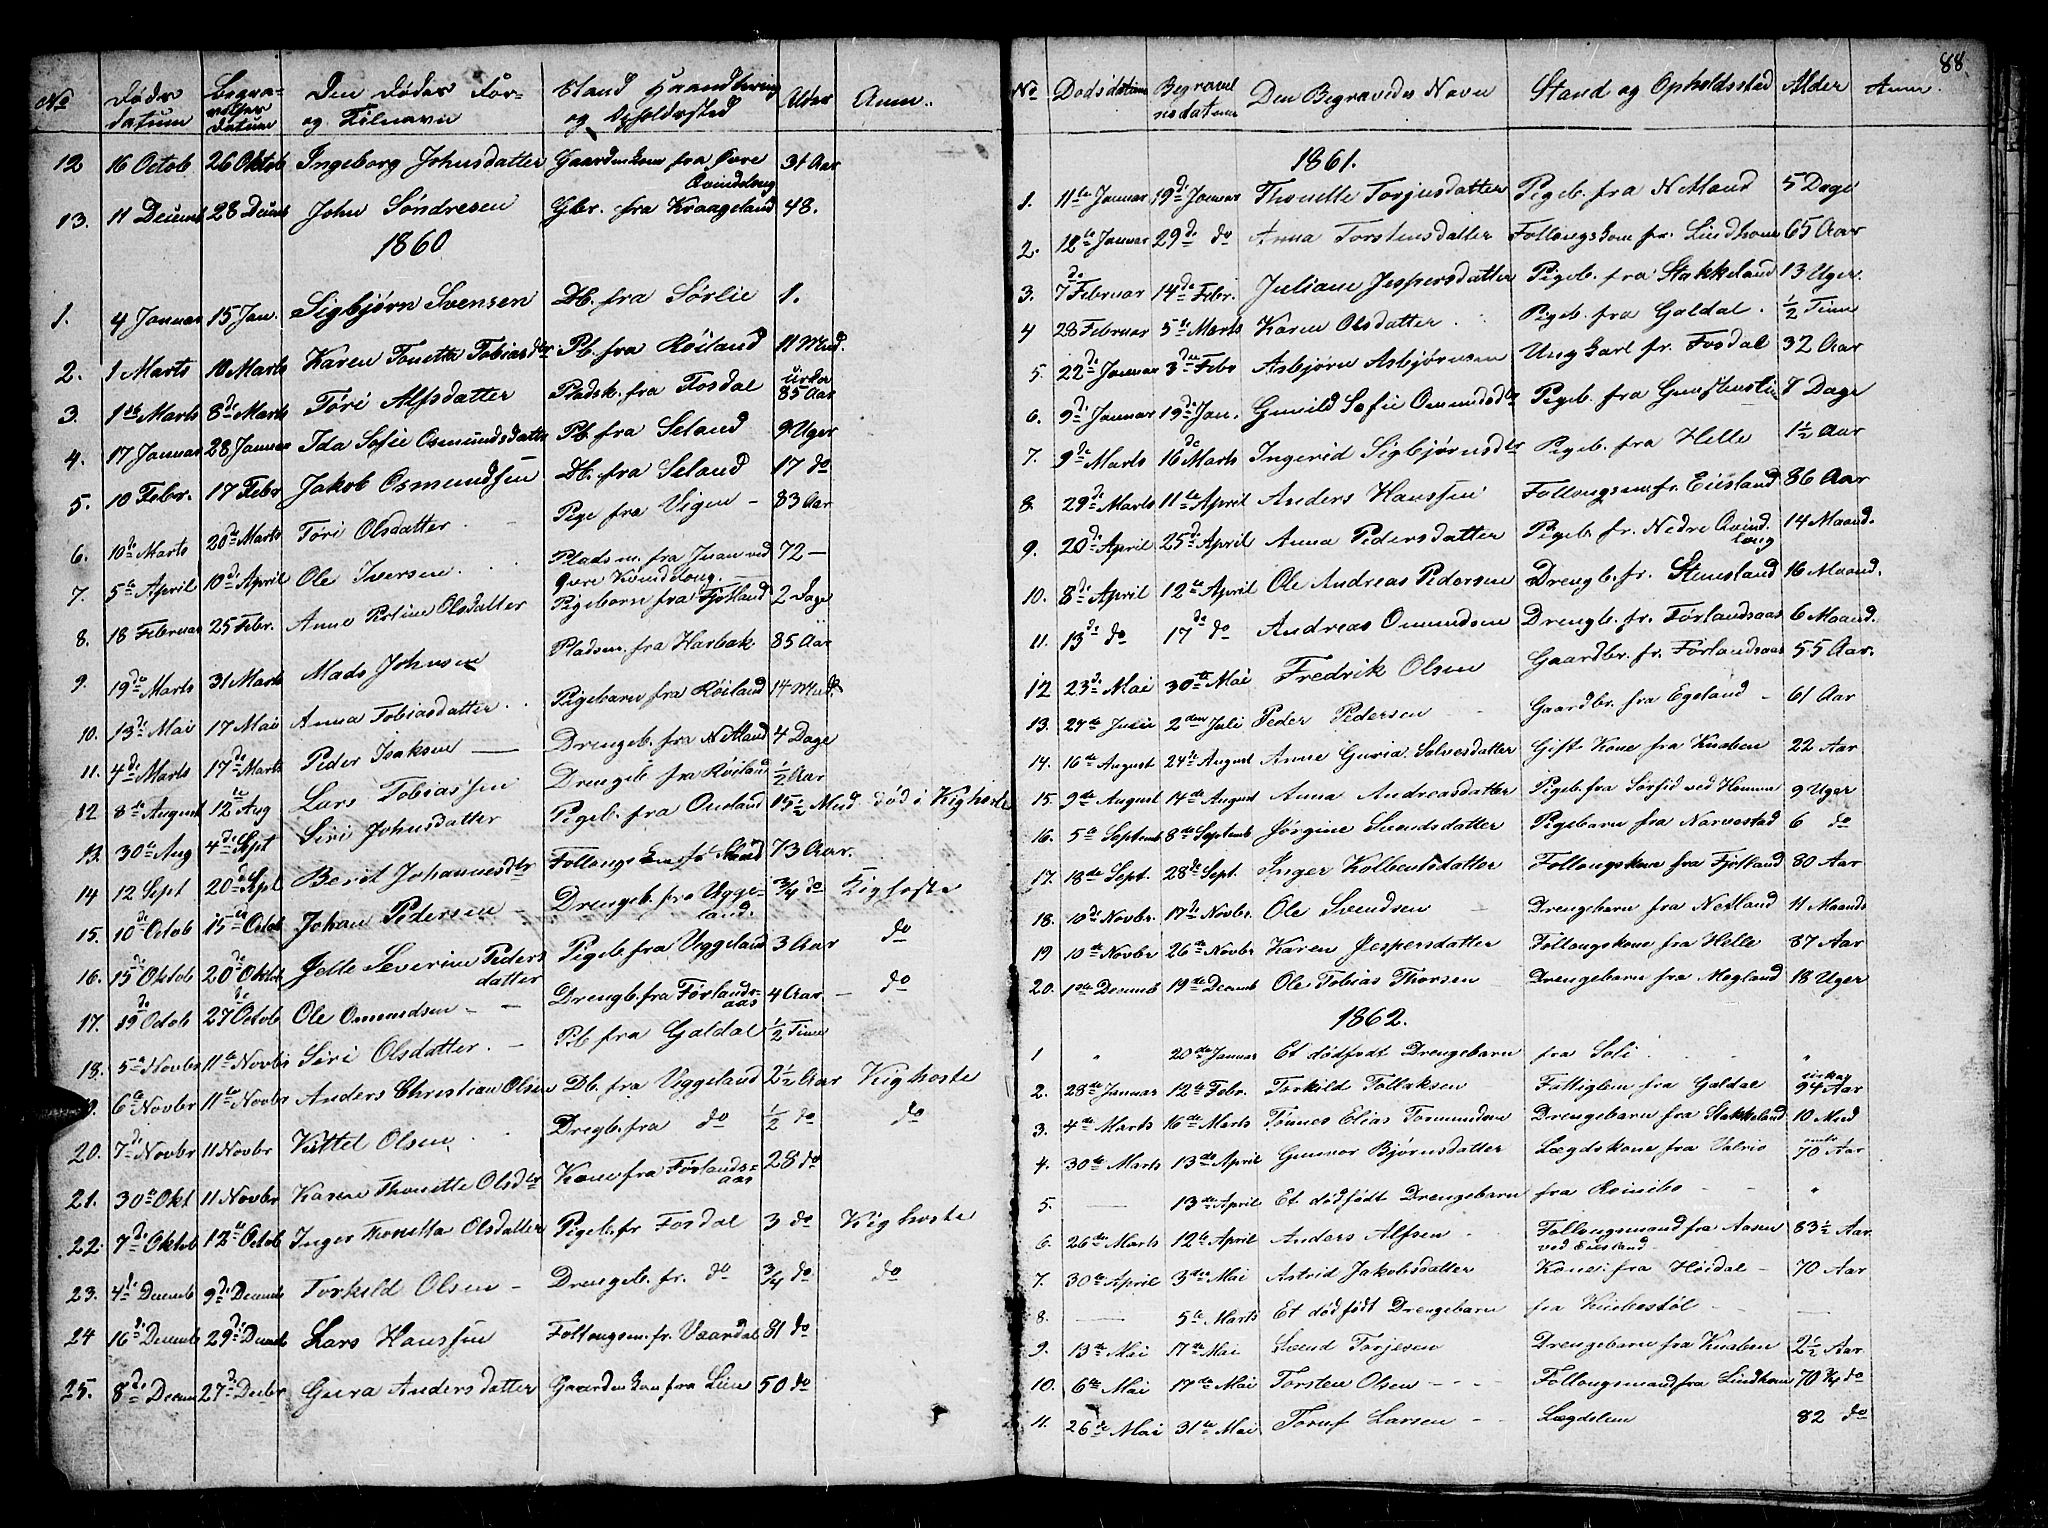 88.
No Døds datum Begravelses datum Den Dødes For- og Tilnavn Stand Haandtering og Opholdssted Alder Anm.
12 16 Octob 26 Oktob Ingeborg Johnsdatter Gaardmskone fra Øvre Qvindeloug 31 Aar
13. 11 Decemb 28 Decemb John Søndresen Gbr. fra Kraageland 48.
1860
1. 4 Januar 15 Jan. Sigbjørn Svensen Db. fra Sørlie 1.
2. 1 Marts 10 Marts Karen Tonette Tobiasdtr Pb. fra Røiland 11 Mnd.
3. 1ste Marts 8de Marts Tøri Alfsdatter Pladsk. fra Fosdal cirka 85 Aar
4. 17 Januar 28 Januar Ida Sofie Osmundsdatter Pb. fra Seland 9 Uger
5. 10 Febr. 17 Febr Jakob Osmundsen Db. fra Seland 17 do
6. 10de Marts 20de Marts Tøri Olsdatter Pige fra Vigen 83 Aar
7. 5te April 10de April Ole Iversen Pladsm. fra Moen ved Øvre Kvindeloug. 72
8. 18 Februar 25 Febr. Anne Olsdatter Pigebarn fra Fjotland 2 Dage
9. 19de Marts 31 Marts Mads Johnsen Pladsm. fra Harbak 85 Aar
10. 13de Mai 17 Mai Anna Tobiasdatter Pigebarn fra Røiland 14 Mndr
11. 4de Marts 17de Marts Peder Isaksen Drengeb. fra Netland 4 Dage
12 8te August 12te Aug Lars Tobiassen Drengeb. fra Røiland 1/2 Aar
13. 30te Aug 4de Sept Siri Johnsdatter Pigeb. fra Omland 15 1/2 Mnd død i Kighoste
14 12 Sept 20de Sept Berit Johannesdtr Follougs 73 Aar.
15. 10de Octob 15de Octob Johan Pedersen Drengeb. fra Viggeland. 3/4 do Kighoste
16. 15de Oktob 20de Oktob Jelle Severine Pedersdatter Pigeb. fra Viggeland 3 Aar do
17. 19de Octob 27de Octob Ole Omundsen Drengb. fra Førlandsaas 4 Aar do
18. 5te Novbr 11te Novbr Siri Olsdatter Pb fra Galdal 1/2 Time
19. 6te Novbr 11te Novbr Anders Christian Olsen Db. fra Viggeland 2 1/2 Aar Kighoste
20. 7de Novbr 11 Novbr Kittel Olsen Dregb. fra do 1/2 do do
21. 30te Okt 11 Novbr Karen Thonette Olsdtr Kone fra Førlandsaas 28 do
22. 7de Oktob 12te Octob Inger Tonetta Olsdatter Pigeb. fr Fosdal 3 do Kighoste
23. 4de Decemb 9de Decemb Torkild Olsen Drengeb. fr. do 3/4 do do
24 16de Decemb 29de Decemb Lars Hanssen Follougsm. fr. Vaardal 81 do
25. 8de Decem 27de Decbr Gura Andersdatter Gaardmskone fra Lien 50 do
No Dødsdatum Begravelsesdatum Den Begravedes Navn Stand og Opholdssted Alder Anm.
1861.
1. 11te Januar 19de Januar Thonette Torjusdatter Pigeb. fra Netland 5 Dage
2. 12te Januar 29de do Anna Torstensdatter Follougskone fr. Lindhom 65 Aar
3. 7de Februar 14de Febr. Juliane Jespersdatter Pigeb. fra Stakkeland 13 Uger.
4 28 Februar 5te Marts Karen Olsdatter Pigeb. fra Galdal. 1/2 Time
5. 22de Januar 3die Febr Asbjørn Asbjørnsen Ungkarl fr. Fosdal 32 Aar
6. 9de Januar 19de Jan. Gunild Sofie Osmundsdtr Pigeb. fra 7 Dage
7. 9de Marts 16de Marts Ingerid Sigbjørnsdtr Pigeb. fra Helle 1 1/2 Aar
8. 29de Marts 11te April Anders Hanssen Follougsm. fr. Eiesland 86 Aar
9. 20de April 25de April Anna Pedersdatter Pigeb. fr. Nedre Qvindloug 14 Maand.
10. 8de April 12te April Ole Andreas Pedersen Drengb. fr. Stensland 16 Maand.
11. 13de do 17de do Andreas Omundsen Drengb. fr. Førlandsaas 6 Maand.
12 23de Mai 30te Mai Fredrik Olsen Gaardbr. fr. Førlandsaas 55 Aar.
13. 24de Juni 2den Juli Peder Pedersen Gaardbr. fra Egeland 61 Aar
14. 16de August 24de August Anne Guria Salvesdatter Gift Kone fra Knaben 22 Aar
15. 9de August 14de August Anna Andreasdatter Pigeb. fra Sørsid ved Homme 9 Uger
16. 5te Septemb 8de Septemb Jørgine Svendsdatter Pigebarn fra Narvestad 6 do
17. 18de Sept. 28de Sept. Inger Kolbensdatter Follougskone fra Fjotland 80 Aar
18. 10de Novbr. 17de Novbr. Ole Svendsen Drengebarn fra Netland 11 Maands
19 10de Novbr 26de Novbr Karen Jespersdatter Follougskone fra Helle 87 Aar
20. 1ste Decemb 19de Decemb Ole Tobias Thorsen Drengebarn fra Mogland 18 Uger
1862.
1 " 20de Januar Et dødfødt Drengebarn fra Soli "
2. 28de Januar 12te Febr. Torkild Tollaksen Fattiglem fra Galdal cirka 94 Aar
3. 4de Marts 16de Marts Tønnes Elias Tormundsen Drengebarn fra Stakkeland 10 Mnd
4. 30te Marts 13de April Gunvor Bjørnsdatter Lægdskone fra 70 Aar
5. 13de April Et dødfødt Drengebarn fra "
6. 26de Marts 12te April Anders Alfsen Follougsmand fra Aasen ved Eiesland 83 1/2 Aar
7. 30te April 3die Mai Astrid Jakobsdatter Kone fra Høidal 70 Aar
8. 5te Marts Et dødfødt Drengebarn fra
9. 13de Mai 17de Mai Svend Torjesen Drengebarn fra Knaben 2 1/2 Aar
10. 6te Mai 17de Mai Torsten Olsen Follougsmand fra Lindhom 70 3/4 do
11. 26de Mai 31te Mai Larsen Lægdslem 82 do